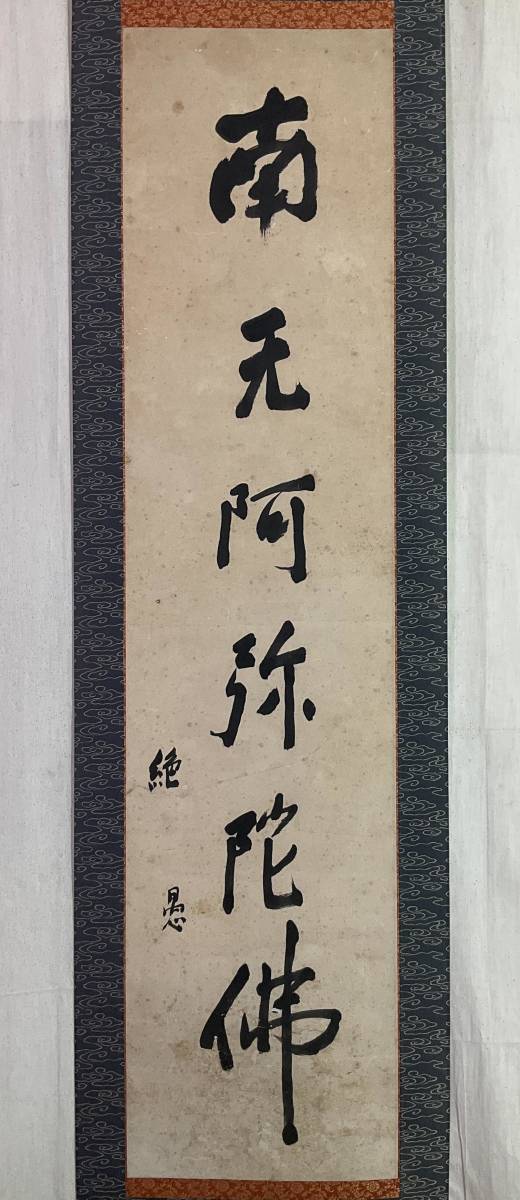 南无阿弥陀佛
絶愚